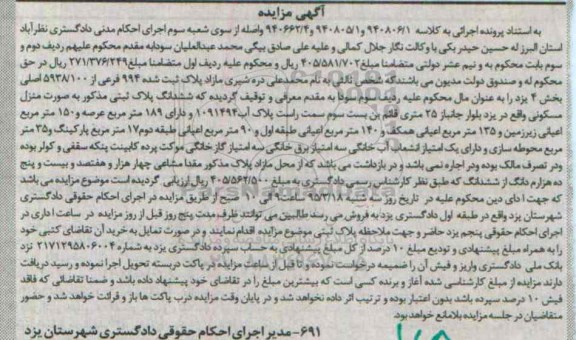 آگهی مزایده
به استناد پرونده اجرائی به کلاسه ۹۴۰۸۰۶/۱ و ۹۴۰۸۰۵/۱ و ۹۴۰۶۶۲/۴ واصله از سوی شعبه سوم اجرای احکام مدنی دادگستری نظرآباد
استان البرز له حسین حیدر بکی با وکالت نگار جلال کمالی و علیه علی صادق بیگی محمد عبدالعلیان سودابه مقدم محکوم علیهم ردیف دوم و
سوم بابت محکوم به و نیم عشر دولتی متضامنا مبلغ ۴۰۵/۵۸۱/۷۰۲ ریال و محکوم علیه ردیف اول متضامنا مبلغ ۲۷۱/۳۷۶/۲۴۹ ریال در حق
محکوم له و صندوق دولت مدیون می باشند که شخص ثالثی به نام محمدعلی دره شیری مازاد پلاک ثبت شده ۹۹۴ فرعی از ۵۹۳۸/۱۰۰ اصلی
بخش ۴ یزد را به عنوان مال محکوم علیه ردیف سوم سودا به مقدم معرفی و توقیف گردیده که ششدانگ پلاک ثبتی مذکور به صورت منزل
مسکونی واقع در یزد بلوار جانباز ۲۵ متری قائم بن بست سوم سمت راست پلاک آب ۱۰۹۱۴۹۴ و دارای ۱۸۹ متر مربع عرصه و ۱۵۰ متر مربع
اعیانی زیرزمین و ۱۳۵ متر مربع اعیانی همکف و ۱۴۰ متر مربع اعیانی طبقه اول و ۹۰ متر مربع اعیانی طبقه دوم ۱۷ متر مربع پارکینگ و ۳۵ متر
مربع محوطه سازی و دارای یک امتیاز انشعاب آب خانگی سه امتیاز برق خانگی سه امتیاز گاز خانگی موکت پرده کابینت پنکه سقفی و کولر بوده
ودر تصرف مالک بوده ودر اجاره نمی باشد و در بازداشت می باشد که از محل مازاد پلاک مذکور مقدا مشاعی چهار هزار و هفتصد و بیست و پنج
ده هزارم دانگ از ششدانگ که طبق نظر کارشناس رسمی دادگستری به مبلغ ۴۰۵/۵۶۲/۵۰۰ ریال ارزیابی گردیده است موضوع مزایده می باشد
که جهت ادای دین محکوم علیه در تاریخ روز سه شنبه ۹۵/۳/۱۸ ساعت ۹ الی ۱۰ صبح از طریق مزایده در اجرای احکام حقوقی دادگستری
شهرستان یزد واقع در طبقه اول دادگستری یزد به فروش می رسد طالبین می توانند ظرف مدت پنج روز قبل از روز مزایده در ساعت اداری در
اجرای احکام حقوقی پنجم یزد حاضر و جهت ملاحظه پلاک ثبتی موضوع مزایده اقدام نمایند و در صورت تمایل به خرید آن تقاضای کتبی خود
را به همراه مبلغ پیشنهادی و تودیع مبلغ ۱۰ درصد از کل مبلغ پیشنهادی به حساب سپرده دادگستری یزد به شماره ۲۱۷۱۲۹۵۸۰۶۰۰۴ نزد
بانک ملی دادگستری واریز و فیش آن را ضمیمه درخواست نموده و تا قبل از ساعت مزایده در پاکت دربسته تحویل اجرا نموده و رسید دریافت
دارند مزایده از مبلغ کارشناسی شده آغاز و برنده کسی است که بیشترین مبلغ را در تقاضای خود پیشنهاد داده باشد و ضمنا تقاضائی که فاقد
فیش ۱۰ درصد سپرده باشد بدون اعتبار بوده و ترتیب اثر داده نخواهد شد و در پایان وقت مزایده درب پاکت ها باز و قرائت خواهد شد و حضور
متقاضیان در جلسه مزایده بلامانع خواهد بود.
۶۹۱- مدیر اجرای احکام حقوقی دادگستری شهرستان یزد